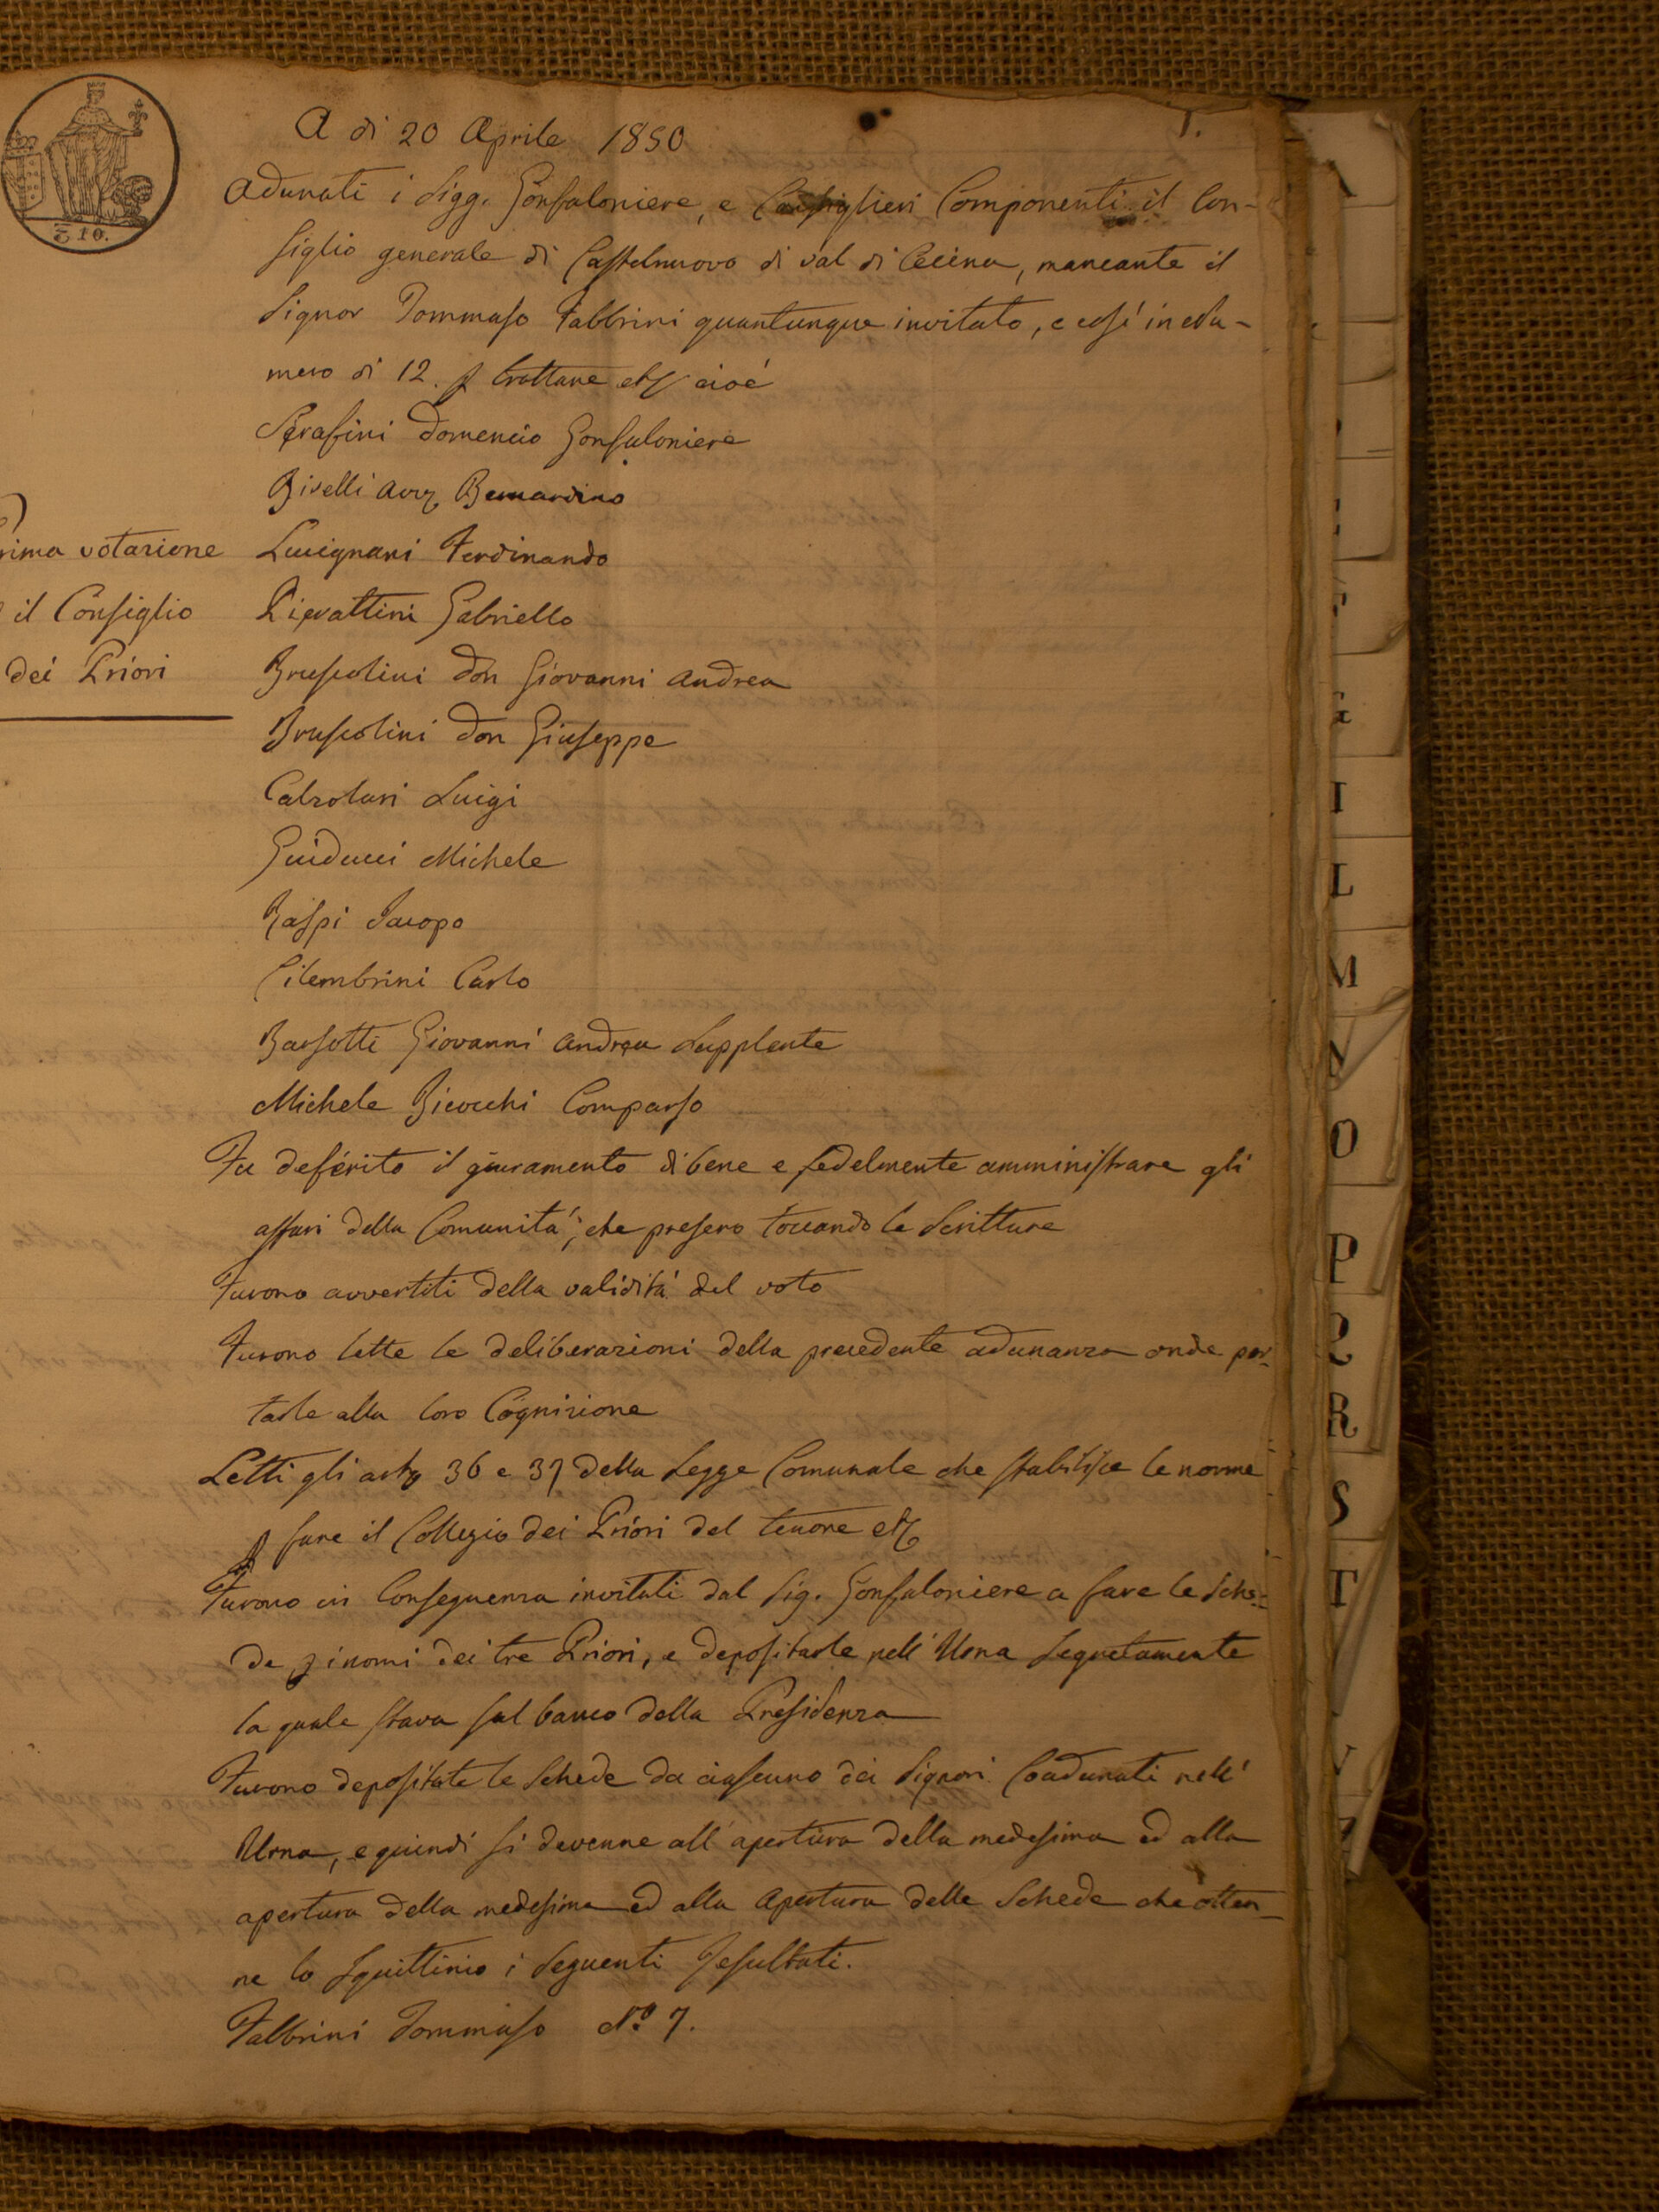 1.
A di 20 Aprile 1850
Adunati i Sigg. Gonfaloniere, e Consiglieri Componenti il Con-
siglio generale di Castelnuovo di val di Cecina, mancante il
Signor Tommaso Fabbrini quantunque invitato, e così in Nu-
mero di 12. p trattare etc cioé
Serafini Domenico Gonfaloniere
Biselli Bernardino
Lucignani Ferdinando
Pierattini Gabriello
Bruscolini Don Giovanni Andrea
Bruscolini Don Giuseppe
Calzolari Luigi
Guiducci Michele
Raspi Jacopo
Cilembrini Carlo
Barsotti Giovanni Andrea Supplente
Michele Bicocchi Comparso
rima votazione
il Consiglio
dei Priori
Fu deferito il giuramento di bene e fedelmente amministrare gli
affari della Comunità; che presero toccando le Scritture
Furono avvertiti della validità del voto
Furono lette le deliberazioni della precedente adunanza onde por-
tarle alla loro Cognizione
Letti gli art 36 e 37 della Legge Comunale che stabilisce le norme
p fare il Collegio dei Priori del tenore etc
Furono in Conseguenza invitati dal Sig. Gonfaloniere a fare le Sche-
de p i nomi dei tre Priori, e depositarle nell' Urna Segretamente
la quale stava sul banco della Presidenza
Furono depositate le Schede da ciascuno dei Signori Coadunati nell'
Urna, e quindi si devenne all' apertura della medesima ed alla
apertura della medesima ed alla Apertura delle Schede che otten-
ne lo Squittinio i Seguenti Resultati.
Fabbrini Tommaso N.º 7.
₵ 10.
I
L
M
N
O
P
Q
R
S
T
V